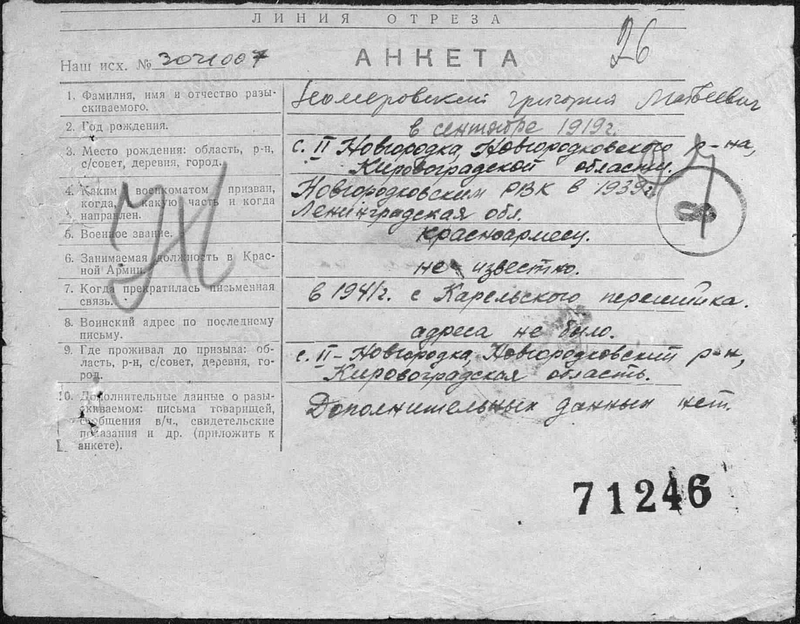 ЛИНИЯ ОТРЕЗА
26
Наш исх. № 3021007
АНКЕТА
1. Фамилия, имя и отчество разыскиваемого.
Григорий Матвеевич
2. Год рождения.
в сентябре 1919г.
3. Место рождения: область, р-н, с/совет, деревня, город.
с. II Новгородка, Новгородковского р-на,
Кировоградской области.
4. Каким военкоматом призван, когда, в какую часть и когда направлен.
Новгородковским РВК в 1939г.
Ленинградская обл.
5. Военное звание.
красноармеец.
6. Занимаемая должность в Красной Армии.
не известно.
7. Когда прекратилась письменная связь.
в 1941г. с Карельского перешейка.
8. Воинский адрес по последнему письму.
адреса не было.
9. Где проживал до призыва: область, р-н, с/совет, деревня, город.
с. II-Новгородка, Новгородковский р-н,
Кировоградская область.
10. Дополнительные данные о разыскиваемом: письма товарищей, сообщения в/ч., свидетельские показания и др. (приложить к анкете).
Дополнительных данных нет.
71246